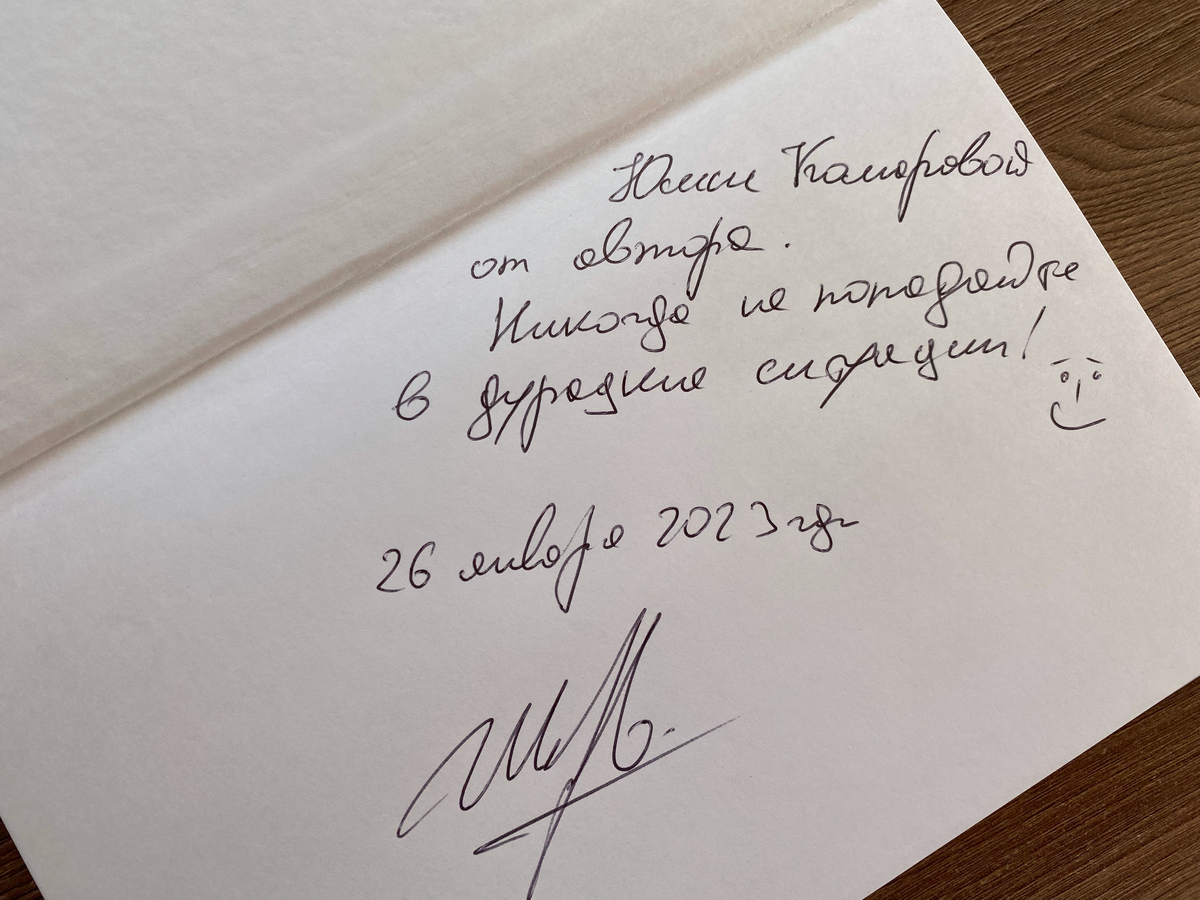 Юлии Комаровой
от автора.
Никогда не попадайте
в дурацкие ситуации!
26 января 2023 года